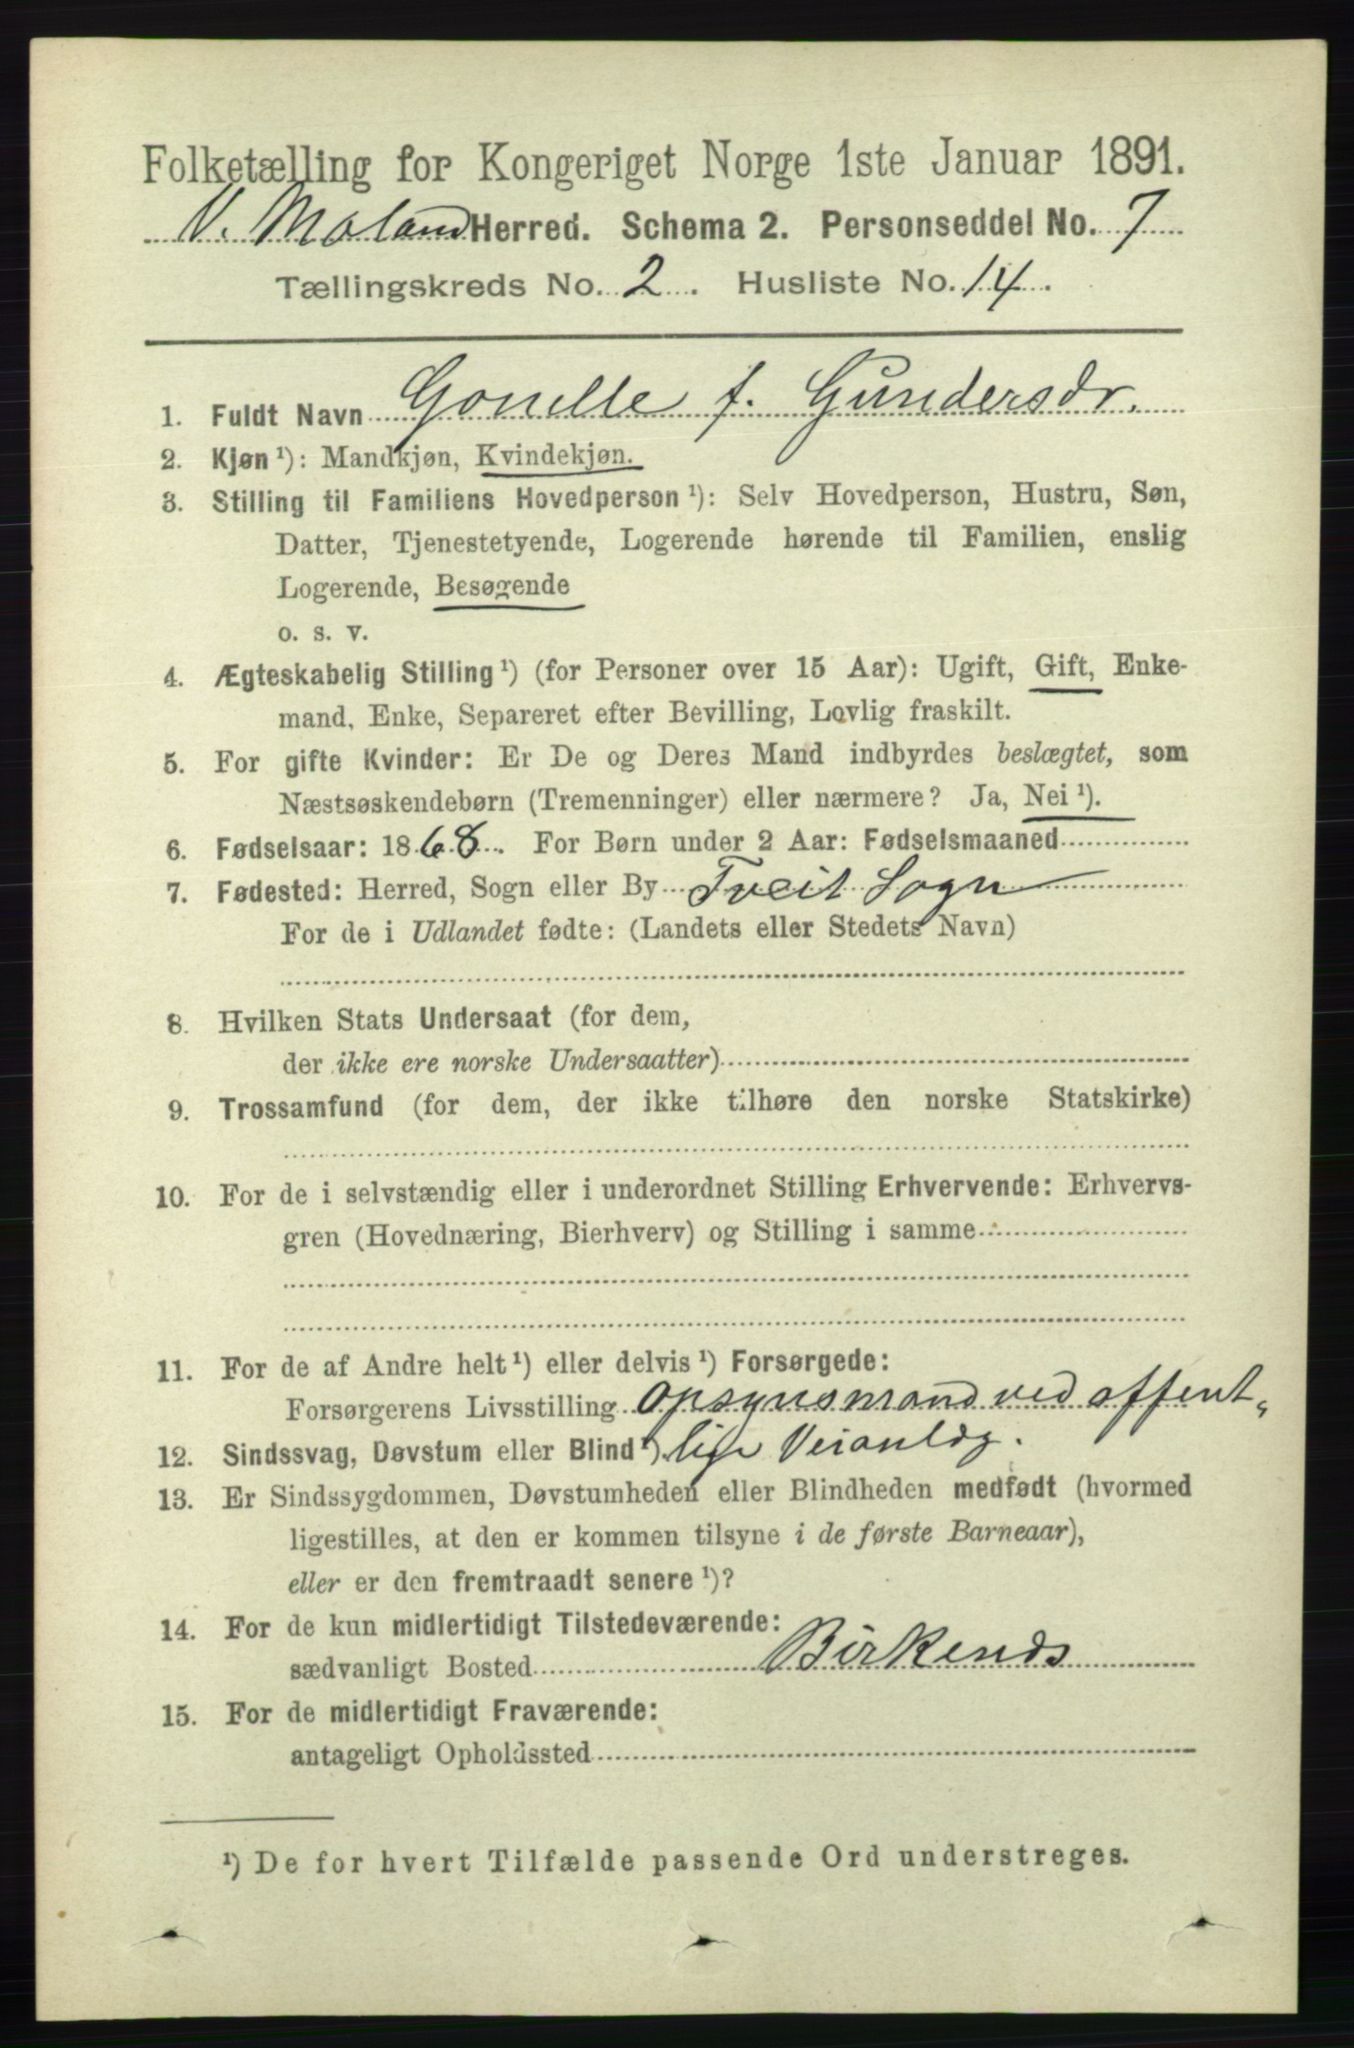 Folketælling for Kongeriget Norge 1ste Januar 1891.
V. Moland Herred. Schema 2. Personseddel No. 7
Tællingskreds No. 2. Husliste No. 14.
1. Fuldt Navn Gonelle f. Gundersdr.
2. Kjøn ¹): Mandkjøn, Kvindekjøn.
3. Stilling til Familiens Hovedperson ¹): Selv Hovedperson, Hustru, Søn,
Datter, Tjenestetyende, Logerende hørende til Familien, enslig
Logerende, Besøgende
o. s. v.
4. Ægteskabelig Stilling ¹) (for Personer over 15 Aar): Ugift, Gift, Enke-
mand, Enke, Separeret efter Bevilling, Lovlig fraskilt.
5. For gifte Kvinder: Er De og Deres Mand indbyrdes beslægtet, som
Næstsøskendebørn (Tremenninger) eller nærmere? Ja, Nei ¹).
6. Fødselsaar: 1868. For Børn under 2 Aar: Fødselsmaaned
7. Fødested: Herred, Sogn eller By Tveit Sogn
For de i Udlandet fødte: (Landets eller Stedets Navn)
8. Hvilken Stats Undersaat (for dem,
der ikke ere norske Undersaatter)
9. Trossamfund (for dem, der ikke tilhøre den norske Statskirke)
10. For de i selvstændig eller i underordnet Stilling Erhvervende: Erhvervs-
gren (Hovednæring, Bierhverv) og Stilling i samme
11. For de af Andre helt ¹) eller delvis ¹) Forsørgede:
Forsørgerens Livsstilling Opsynsmand ved offent-
12. Sindssvag, Døvstum eller Blind ¹). lige Veianlæg.
13. Er Sindssygdommen, Døvstumheden eller Blindheden medfødt (hvormed
ligestilles, at den er kommen tilsyne i de første Barneaar),
eller er den fremtraadt senere ¹)?
14. For de kun midlertidigt Tilstedeværende:
sædvanligt Bosted Birkenæs
15. For de midlertidigt Fraværende:
antageligt Opholdssted
¹) De for hvert Tilfælde passende Ord understreges.